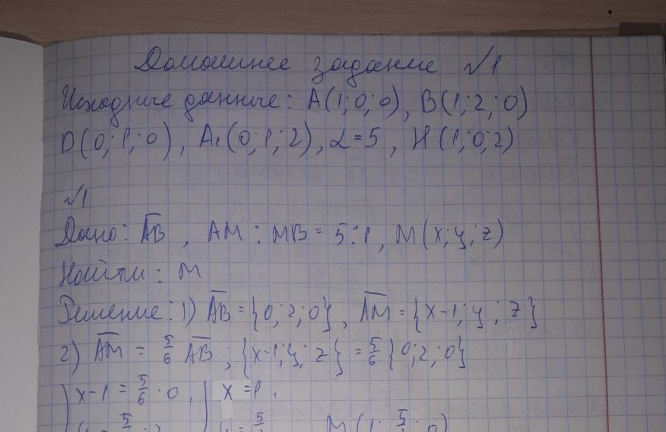 Домашнее задание №1
Исходные данные: A(1;0;0), B(1;2;0)
D(0;1;0), A₁(0;1;2), α=5, H(1;0;2)
№1
Дано: AB̅, AM : MB = 5:1, M(x;y;z)
Найти: M
Решение: 1) AB̅ = {0;2;0}, AM̅ = {x-1; y; z}
2) AM̅ = 5/6 AB̅; {x-1; y; z} = 5/6 {0;2;0}
x-1 = 5/6 · 0, x = 1,